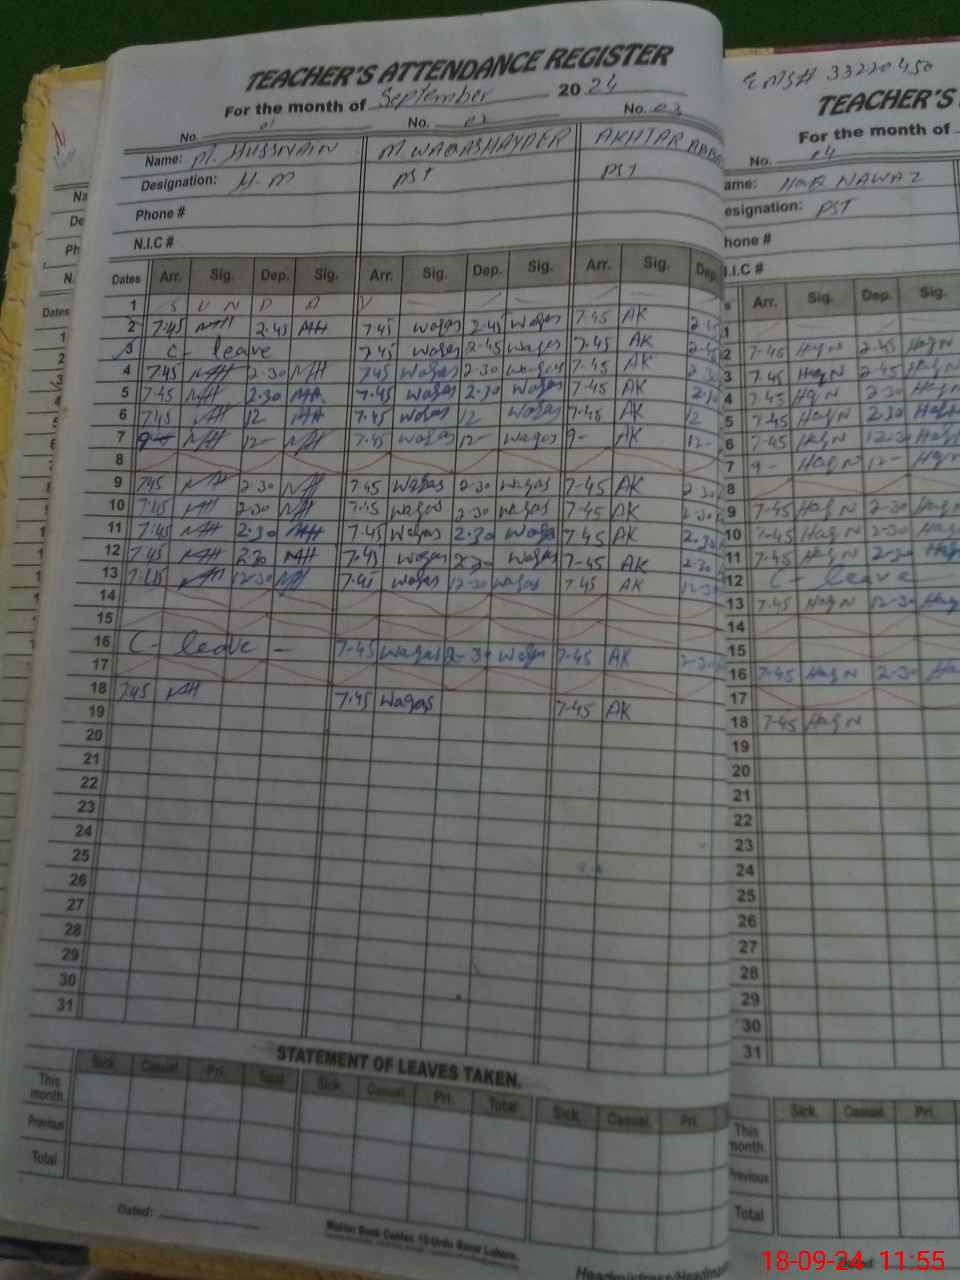 TEACHER'S ATTENDANCE REGISTER
For the month of September 2024
No. 01 No. 02 No. 03
Name: M. HUSSNAIN M WAQAS HAYDER AKHTAR ABBA
Designation: H-M PST PST
Phone #
N.I.C #
Dates Arr. Sig. Dep. Sig. Arr. Sig. Dep. Sig. Arr. Sig. Dep.
1 S U N D A Y
2 7.45 MH 2.45 MH 7.45 waqas 2-45 waqas 7-45 AK 2-45
3 C- leave 7.45 waqas 2-45 waqas 7-45 AK 2-45
4 7.45 MH 2-30 MH 7.45 waqas 2-30 waqas 7-45 AK 2-30
5 7.45 MH 2.30 MH 7.45 waqas 2-30 waqas 7-45 AK 2.30
6 7.45 MH 12 MH 7.45 waqas 12 waqas 7-45 AK 12
7 9- MH 12- MH 7.45 waqas 12- waqas 9- AK 12-
8
9 7.45 MH 2-30 MH 7.45 waqas 2-30 waqas 7-45 AK 2-30
10 7.45 MH 2-30 MH 7.45 waqas 2-30 waqas 7-45 AK 2-30
11 7.45 MH 2.30 MH 7.45 waqas 2.30 waqas 7-45 AK 2.30
12 7.45 MH 2.30 MH 7.45 waqas waqas 7-45 AK 2-30
13 7.45 MH 12-30 MH 7.45 waqas 12-30 waqas 7.45 AK 12-30
14
15
16 C- leave - 7-45 waqas 2-30 waqas 7-45 AK 2-30
17
18 7.45 MH 7.45 waqas 7-45 AK
19
20
21
22
23
24
25
26
27
28
29
30
31
STATEMENT OF LEAVES TAKEN.
Sick. Casual. Pri. Total Sick. Casual. Pri. Total Sick. Casual. Pri.
This month.
Previous
Total
Dated:
Master Book Center, 10-Urdu Bazar Lahore.
Headmistress/Headm
EMIS# 33220450
TEACHER'S
For the month of
No. 04
ame: HAQ NAWAZ
esignation: PST
hone #
I.I.C #
s Arr. Sig. Dep. Sig.
1
2 7-45 Haq N 2-45 Haq N
3 7.45 Haq N 2-45 Haq N
4 7.45 Haq N 2.30 Haq N
5 7-45 Haq N 2.30 Haq
6 7-45 Haq N 12.30 Haq
7 9- Haq N 12- Haq N
8
9 7-45 Haq N 2-30 Haq
10 7-45 Haq N 2-30 Haq
11 7-45 Haq N 2-30 Haq
12 C- leave
13 7.45 Haq N 12-30 Haq
14
15
16 7-45 Haq N 2-30 Ha
17
18 7-45 Haq N
19
20
21
22
23
24
25
26
27
28
29
30
31
Sick. Casual. Pri.
This month.
Previous
Total
Dated
18-09-24 11:55